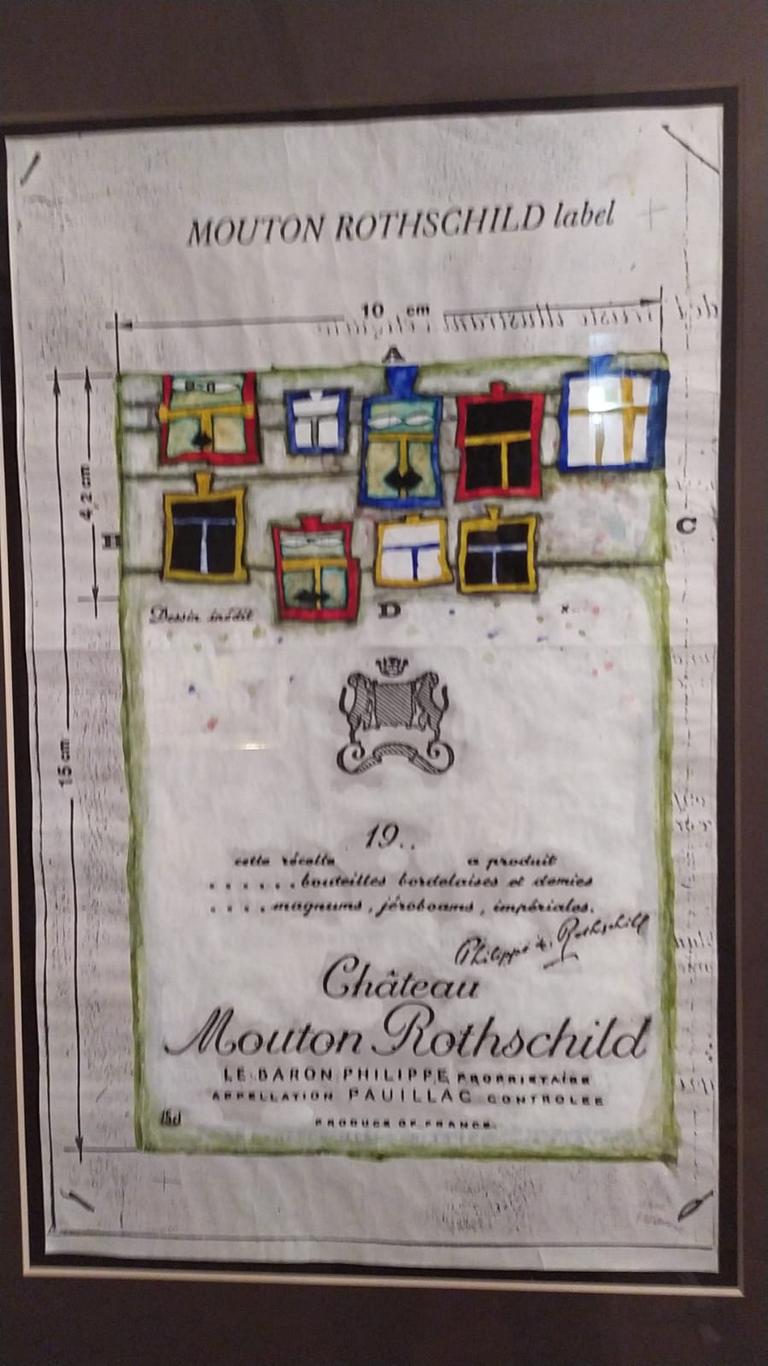 MOUTON ROTHSCHILD label
10 cm
A
4,2 cm
C
Dessin inédit
D
15 cm
19..
cette récolte a produit
......bouteilles bordelaises et demies
....magnums, jéroboams, impériales.
Philippe de Rothschild
Château
Mouton Rothschild
LE BARON PHILIPPE PROPRIETAIRE
APPELLATION PAUILLAC CONTROLEE
PRODUCE OF FRANCE